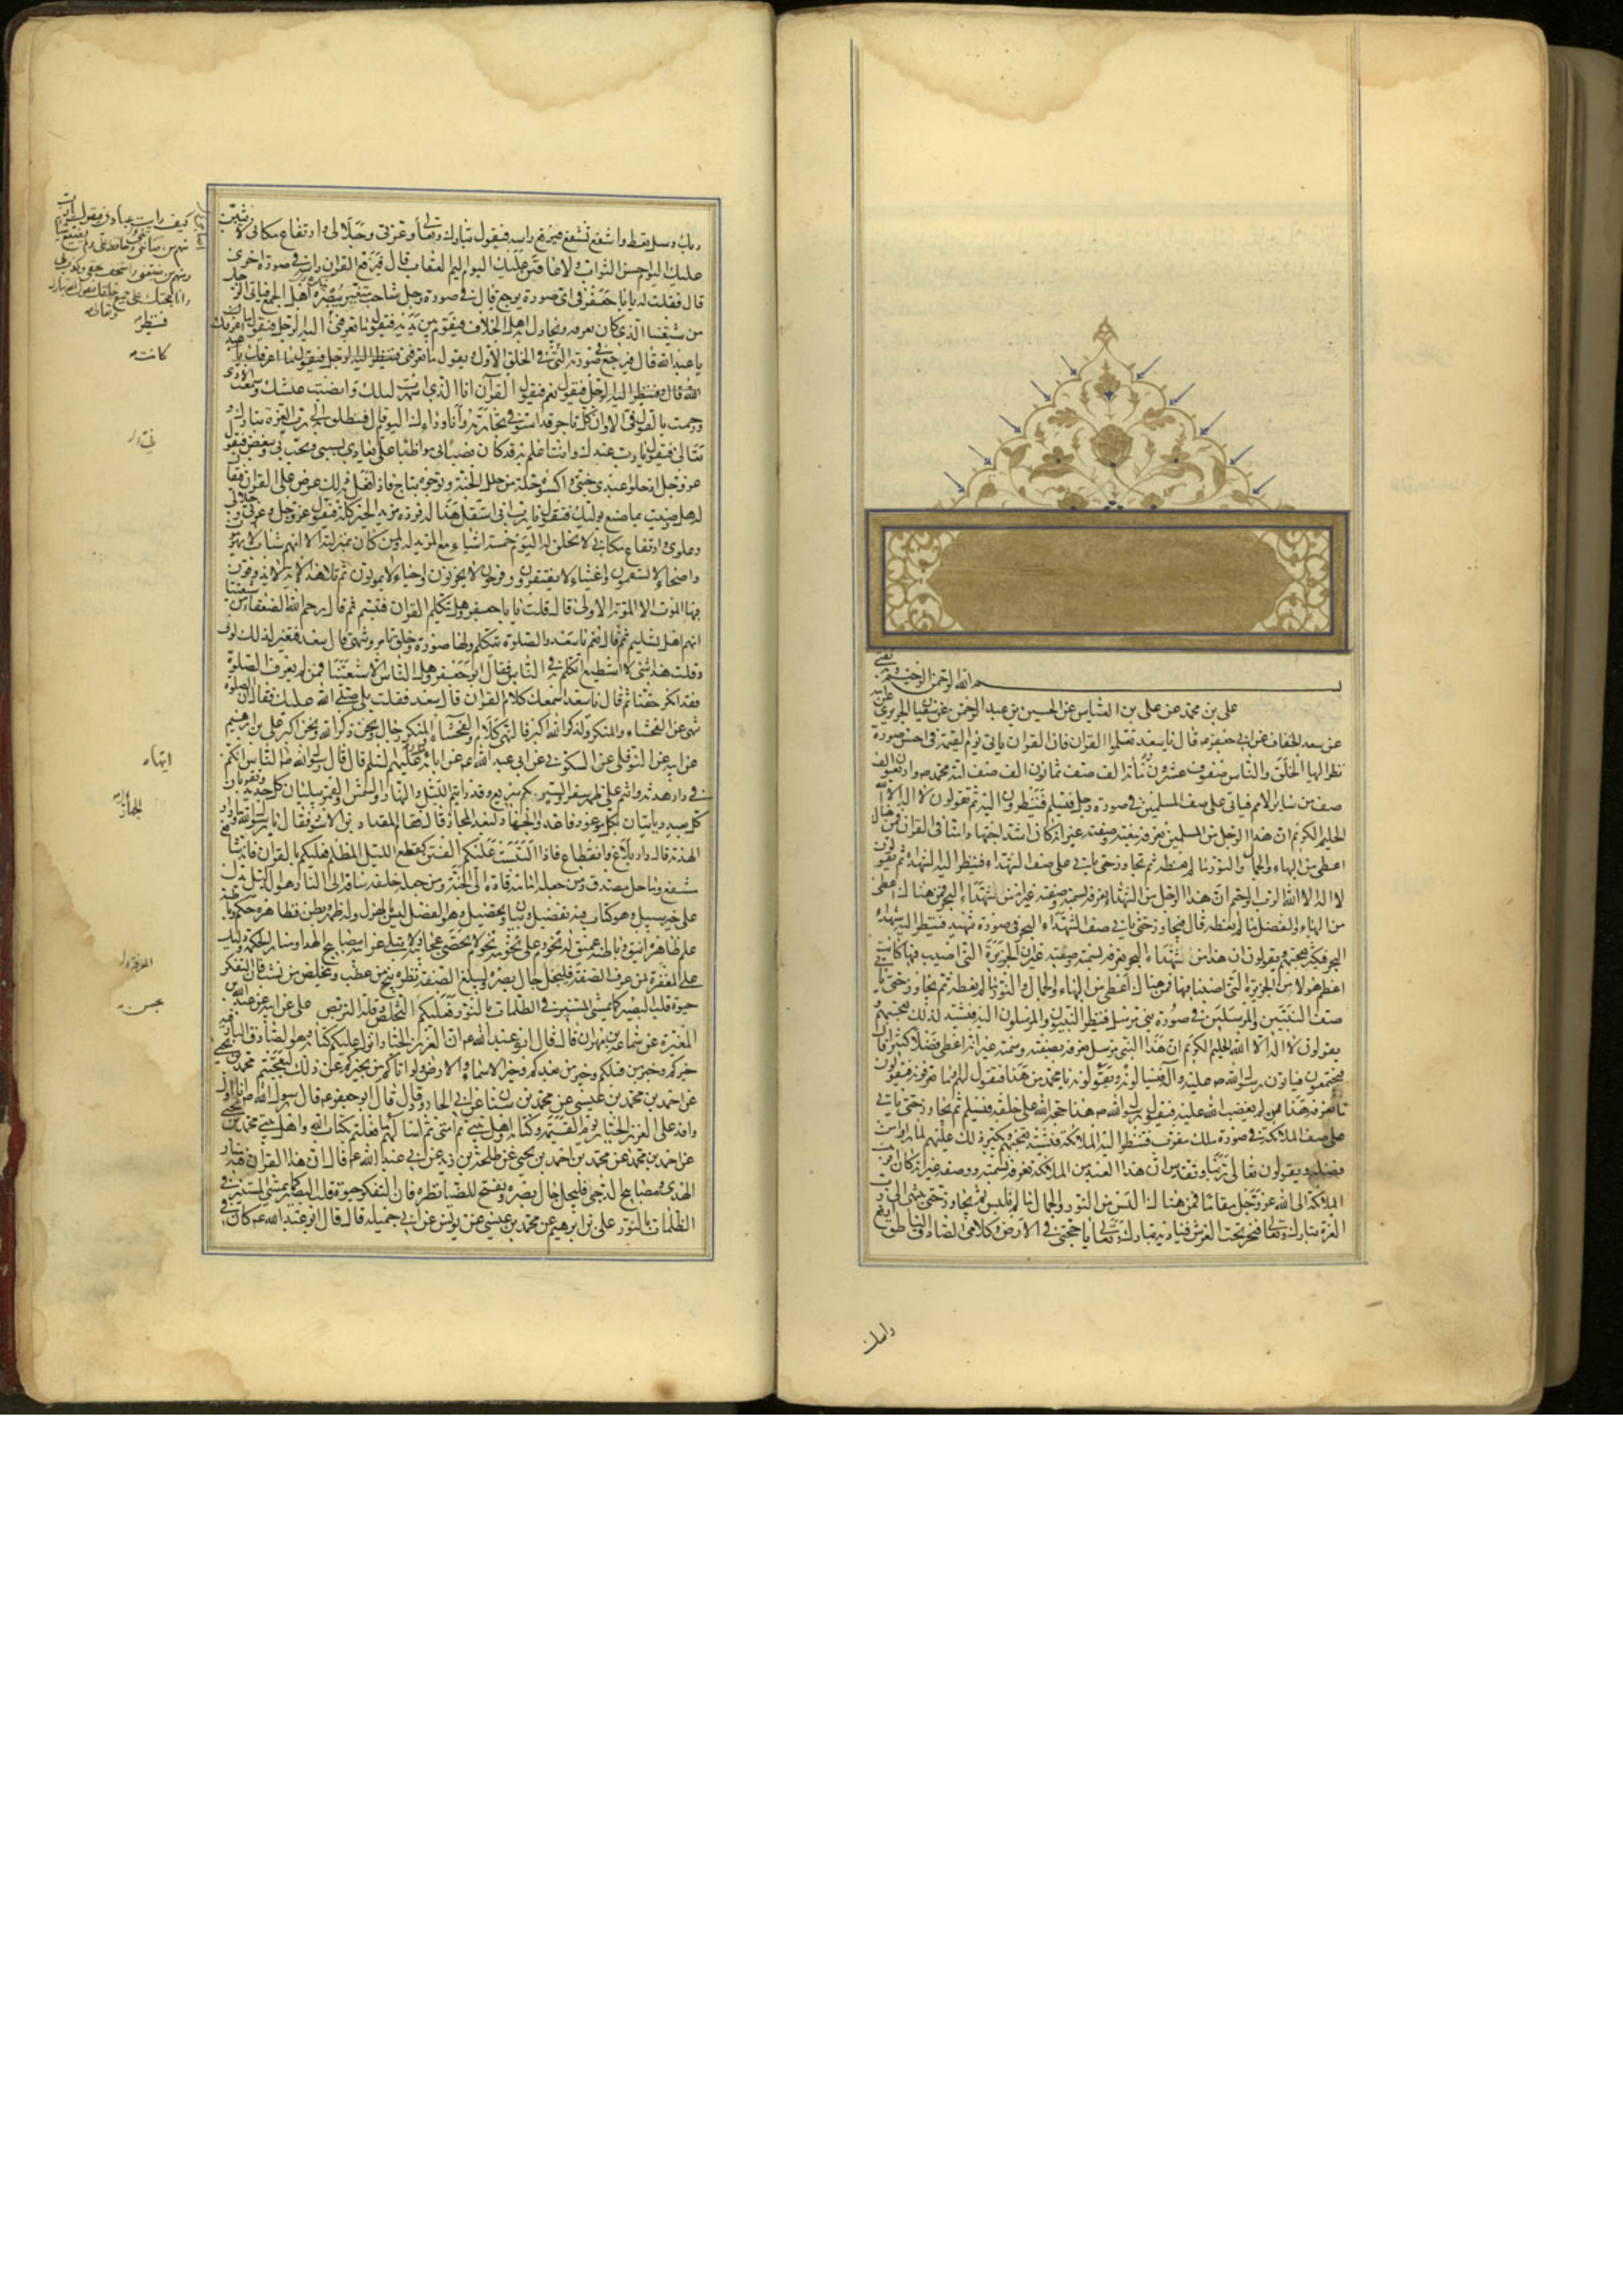 بسم الله الرحمن الرحيم
علي بن محمد عن علي بن العباس عن الحسين بن عبد الرحمن عن سفيان الحريري عن ابيه
عن سعد الخفاف عن ابي جعفر ع قال يا سعد تعلموا القران فان القران ياتي يوم القيمة في احسن صورة
نظر اليها الخلق والناس صفوف عشرون ومائة الف صف ثمانون الف صف امة محمد ص واربعون الف
صف من ساير الامم فياتي على صف المسلمين في صورة رجل فيسلم فينظرون اليه ثم يقولون لا اله الا الله
الحليم الكريم ان هذا الرجل من المسلمين نعرفه بنعته وصفته غير انه كان اشد اجتهادا منا في القران فمن هناك
اعطي من البهاء والجمال والنور ما لم نعطه ثم يجاوز حتى ياتي على صف الشهداء فينظر اليه الشهداء ثم يقولون
لا اله الا الله الرب الرحيم ان هذا الرجل من الشهداء نعرفه بسمته وصفته غير انه من شهداء البحر فمن هناك اعطي
من البهاء والفضل ما لم نعطه قال فيجاوز حتى ياتي صف الشهداء البحر في صورة شهيد فينظر اليه شهداء
البحر فيكثر تعجبهم ويقولون ان هذا من شهداء البحر نعرفه بسمته وصفته غير ان الجزيرة التي اصيب فيها كانت
اعظم هولا من الجزيرة التي اصبنا فيها فمن هناك اعطي من البهاء والجمال والنور ما لم نعطه ثم يجاوز حتى ياتي
صف النبيين والمرسلين في صورة نبي مرسل فينظر النبيون والمرسلون اليه فيشتد لذلك تعجبهم و
يقولون لا اله الا الله الحليم الكريم ان هذا النبي مرسل نعرفه بصفته وسمته غير انه اعطي فضلا كثيرا قال
فيجتمعون فياتون رسول الله ص عليه وآله فيسالونه ويقولون يا محمد من هذا فيقول لهم اما تعرفونه فيقولون
ما نعرفه هذا ممن لم يغضب الله عليه فيقول رسول الله ص هذا حجة الله على خلقه فيسلم ثم يجاوز حتى ياتي
على صف الملائكة في صورة ملك مقرب فتنظر اليه الملائكة فيشتد تعجبهم ويكبر ذلك عليهم لما راوا من
فضله ويقولون تعالى ربنا وتقدس ان هذا العبد من الملائكة نعرفه بسمته ووصفه غير انه كان اقرب
الملائكة الى الله عز وجل مقاما فمن هناك البس من النور والجمال ما لم نلبس ثم يجاوز حتى ينتهي الى رب
العزة تبارك وتعالى فيخر تحت العرش فيناديه تبارك وتعالى يا حجتي في الارض وكلامي الصادق الناطق ارفع
راسك
راسك وسل تعط واشفع تشفع فيرفع راسه فيقول تبارك وتعالى وعزتي وجلالي وارتفاع مكاني لاثيبن
عليك اليوم احسن الثواب ولاعاقبن عليك اليوم اليم العقاب قال فيرجع القران راسه في صورة اخرى
قال فقلت له يا با جعفر في اي صورة يرجع قال في صورة رجل شاحب متغير يبصره اهل الجمع فياتي الرجل
من شيعتنا الذي كان يعرفه ويجادل به اهل الخلاف فيقوم بين يديه فيقول ما تعرفني فينظر اليه الرجل فيقول ما اعرفك
يا عبد الله قال فيرجع في صورته التي في الخلق الاول ويقول ما تعرفني فينظر اليه الرجل فيقول ما اعرفك يا عبد
الله قال فينظر اليه الرجل فيقول نعم فيقول القرآن انا الذي اسهرت ليلك وانصبت عيشك وسمعت الاذى
ورجمت بالقول في الا وان كل تاجر قد استوفى تجارته وانا وراءك اليوم قال فينطلق به الى رب العزة تبارك و
تعالى فيقول يا رب عبدك وانت اعلم به قد كان نصبا بي مواظبا علي يعادي بسببي ويحب بي ويبغض فيقول
عز وجل ادخلوا عبدي جنتي واكسوه حلة من حلل الجنة وتوجوه بتاج فاذا فعل به ذلك عرض على القران فيقال
له هل رضيت بما صنع بوليك فيقول يا رب اني استقل هذا له فزده مزيد الخير كله فيقول عز وجل وعزتي وجلالي
وعلوي وارتفاع مكاني لا نحلن له اليوم خمسة اشياء مع المزيد له ولمن كان بمنزلته الا انهم شباب لا يهرمون
واصحاء لا يسقمون واغنياء لا يفتقرون وفرحون لا يحزنون واحياء لا يموتون ثم تلا هذه الاية لا يذوقون
فيها الموت الا الموتة الاولى قال قلت يا با جعفر وهل يتكلم القران فتبسم ثم قال رحم الله الضعفاء من شيعتنا
انهم اهل تسليم ثم قال نعم يا سعد والصلوة تتكلم ولها صورة وخلق تامر وتنهى قال سعد فتغير لذلك لوني
وقلت هذا شيء لا استطيع اتكلم به في الناس فقال ابو جعفر وهل الناس الا شيعتنا فمن لم يعرف الصلوة
فقد انكر حقنا ثم قال يا سعد اسمعك كلام القران قال سعد فقلت بلى صلى الله عليك فقال ان الصلوة
تنهى عن الفحشاء والمنكر ولذكر الله اكبر فالنهي كلام والفحشاء والمنكر رجال ونحن ذكر الله ونحن اكبر علي بن ابرهيم
عن ابيه عن النوفلي عن السكوني عن ابي عبد الله ع عن ابائه عليهم السلم قال قال رسول الله ص ايها الناس انكم
في دار هدنة وانتم على ظهر سفر والسير بكم سريع وقد رايتم الليل والنهار والشمس والقمر يبليان كل جديد ويقربان
كل بعيد وياتيان بكل موعود فاعدوا الجهاز لبعد المجاز قال فقام المقداد بن الاسود فقال يا رسول الله وما دار
الهدنة قال دار بلاغ وانقطاع فاذا التبست عليكم الفتن كقطع الليل المظلم فعليكم بالقران فانه شافع
مشفع وماحل مصدق ومن جعله امامه قاده الى الجنة ومن جعله خلفه ساقه الى النار وهو الدليل يدل
على خير سبيل وهو كتاب فيه تفصيل وبيان وتحصيل وهو الفصل ليس بالهزل وله ظهر وبطن فظاهره حكم وباطنه
علم ظاهره انيق وباطنه عميق له تخوم وعلى تخومه تخوم لا تحصى عجائبه ولا تبلى غرائبه مصابيح الهدى ومنار الحكمة ودليل
على المغفرة لمن عرف الصفة فليجل جال بصره وليبلغ الصفة نظره ينج من عطب ويتخلص من نشب فان التفكر
حيوة قلب البصير كما يمشي المستنير في الظلمات بالنور فعليكم بحسن التخلص وقلة التربص علي عن ابيه عن عبد الله بن
المغيرة عن سماعة بن مهران قال قال ابو عبد الله ع ان العزيز الجبار انزل عليكم كتابه وهو الصادق البار فيه
خبركم وخبر من قبلكم وخبر من بعدكم وخبر السماء والارض ولو اتاكم من يخبركم عن ذلك لتعجبتم محمد بن يحيى
عن احمد بن محمد بن عيسى عن محمد بن سنان عن ابي الجارود قال قال ابو جعفر ع قال رسول الله ص انا اول
وافد على العزيز الجبار يوم القيمة وكتابه واهل بيتي ثم امتي ثم اسالهم ما فعلتم بكتاب الله واهل بيتي محمد بن يحيى
عن احمد بن محمد عن محمد بن احمد بن يحيى عن طلحة بن زيد عن ابي عبد الله ع قال ان هذا القران فيه منار
الهدى ومصابيح الدجى فليجل جال بصره ويفتح للضياء نظره فان التفكر حيوة قلب البصير كما يمشي المستنير في
الظلمات بالنور علي بن ابرهيم عن محمد بن عيسى عن يونس عن ابي جميلة قال قال ابو عبد الله ع كان في
كيف رايت عبادي فيقول يا رب
منهم من صانني وحافظ علي ولم يضيع شيئا
ومنهم من ضيعني واستخف بحقي وكذب بي
وانا حجتك على جميع خلقك فيقول الله تبارك
وتعالى
فينظر
كانت
انهاء
الجهاز
المعرفة
بحسن